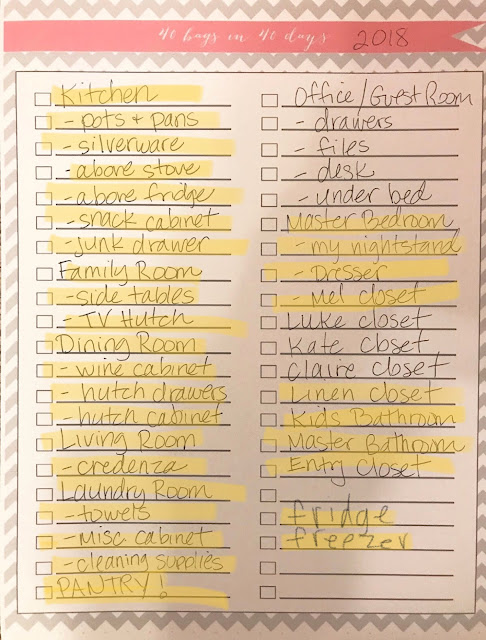 40 bags in 40 days 2018
Kitchen
- pots + pans
- silverware
- above stove
- above fridge
- snack cabinet
- junk drawer
Family Room
- side tables
- TV Hutch
Dining Room
- wine cabinet
- hutch drawers
- hutch cabinet
Living Room
- credenza
Laundry Room
- towels
- Misc cabinet
- cleaning supplies
PANTRY!
Office/Guest Room
- drawers
- files
- desk
- under bed
Master Bedroom
- my nightstand
- Dresser
- Mel closet
Luke closet
Kate closet
Claire closet
Linen closet
Kids Bathroom
Master Bathroom
Entry Closet
fridge
freezer